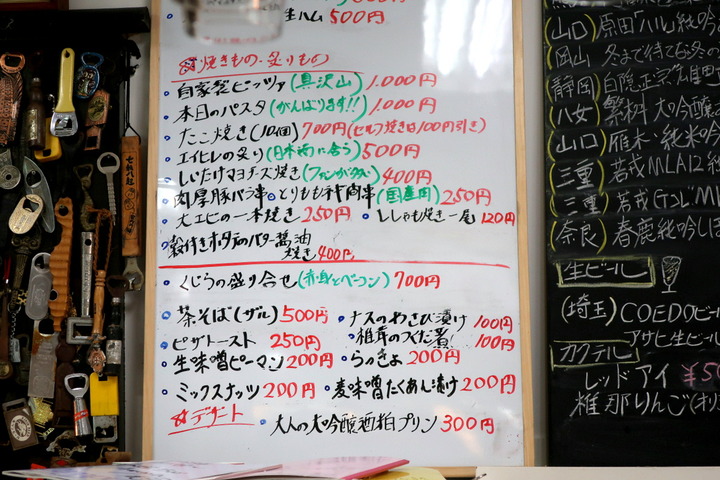 生ハム 500円
焼きもの・炙りもの
・自家製ピッツァ(具沢山) 1.000円
・本日のパスタ(がんばります!!) 1.000円
・たこ焼き(10個) 700円(セルフ焼きは100円引き)
・エイヒレの炙り(日本酒に合う) 500円
・しいたけマヨチーズ焼き(ファンが多い) 400円
・肉厚豚バラ串・とりももネギ間串(国産肉) 250円
・大エビの一本焼き 250円 ・ししゃも焼き一尾 120円
・殻付きホタテのバター醤油
焼き 400円
・くじらの盛り合せ(赤身とベーコン) 700円
・茶そば(ザル) 500円 ・ナスのわさび漬け 100円
・ピザトースト 250円 ・椎茸のつくだ煮 100円
・生味噌ピーマン 200円 ・らっきょ 200円
・ミックスナッツ 200円 ・麦味噌たくあん漬け 200円
☆デザート
・大人の大吟醸酒粕プリン 300円
(山口) 原田"ハル"純吟
(岡山) 冬まで待てない
(静岡) 白隠正宗
(八女) 繁桝 大吟醸
(山口) 雁木・純米吟
(三重) 若戎 MLA12
(三重) 若戎
(奈良) 春鹿 純吟しぼ
生ビール
(埼玉) COEDOビー
アサヒ生ビール
カクテル
レッドアイ ¥50
椎那りんご(オリ